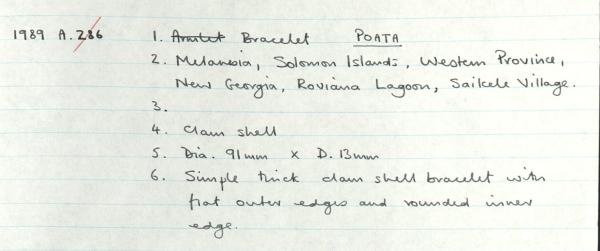 1989 A.286 1. Armlet Bracelet POATA
2. Melanesia, Solomon Islands, Western Province,
New Georgia, Roviana Lagoon, Saikele Village.
3.
4. Clam shell
5. Dia. 91mm x D. 13mm
6. Simple thick clam shell bracelet with
flat outer edges and rounded inner
edge.